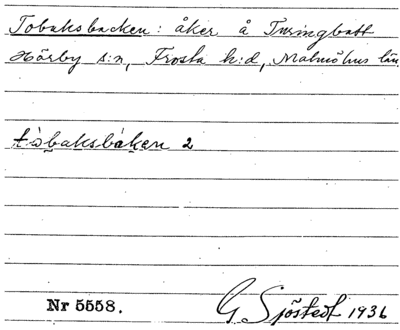 Tobaksbacken: åker å Turingbatt
Hörby s:n, Frosta h:d, Malmöhus län
tòbaksbáken 2
Nr 5558.
G Sjöstedt 1936